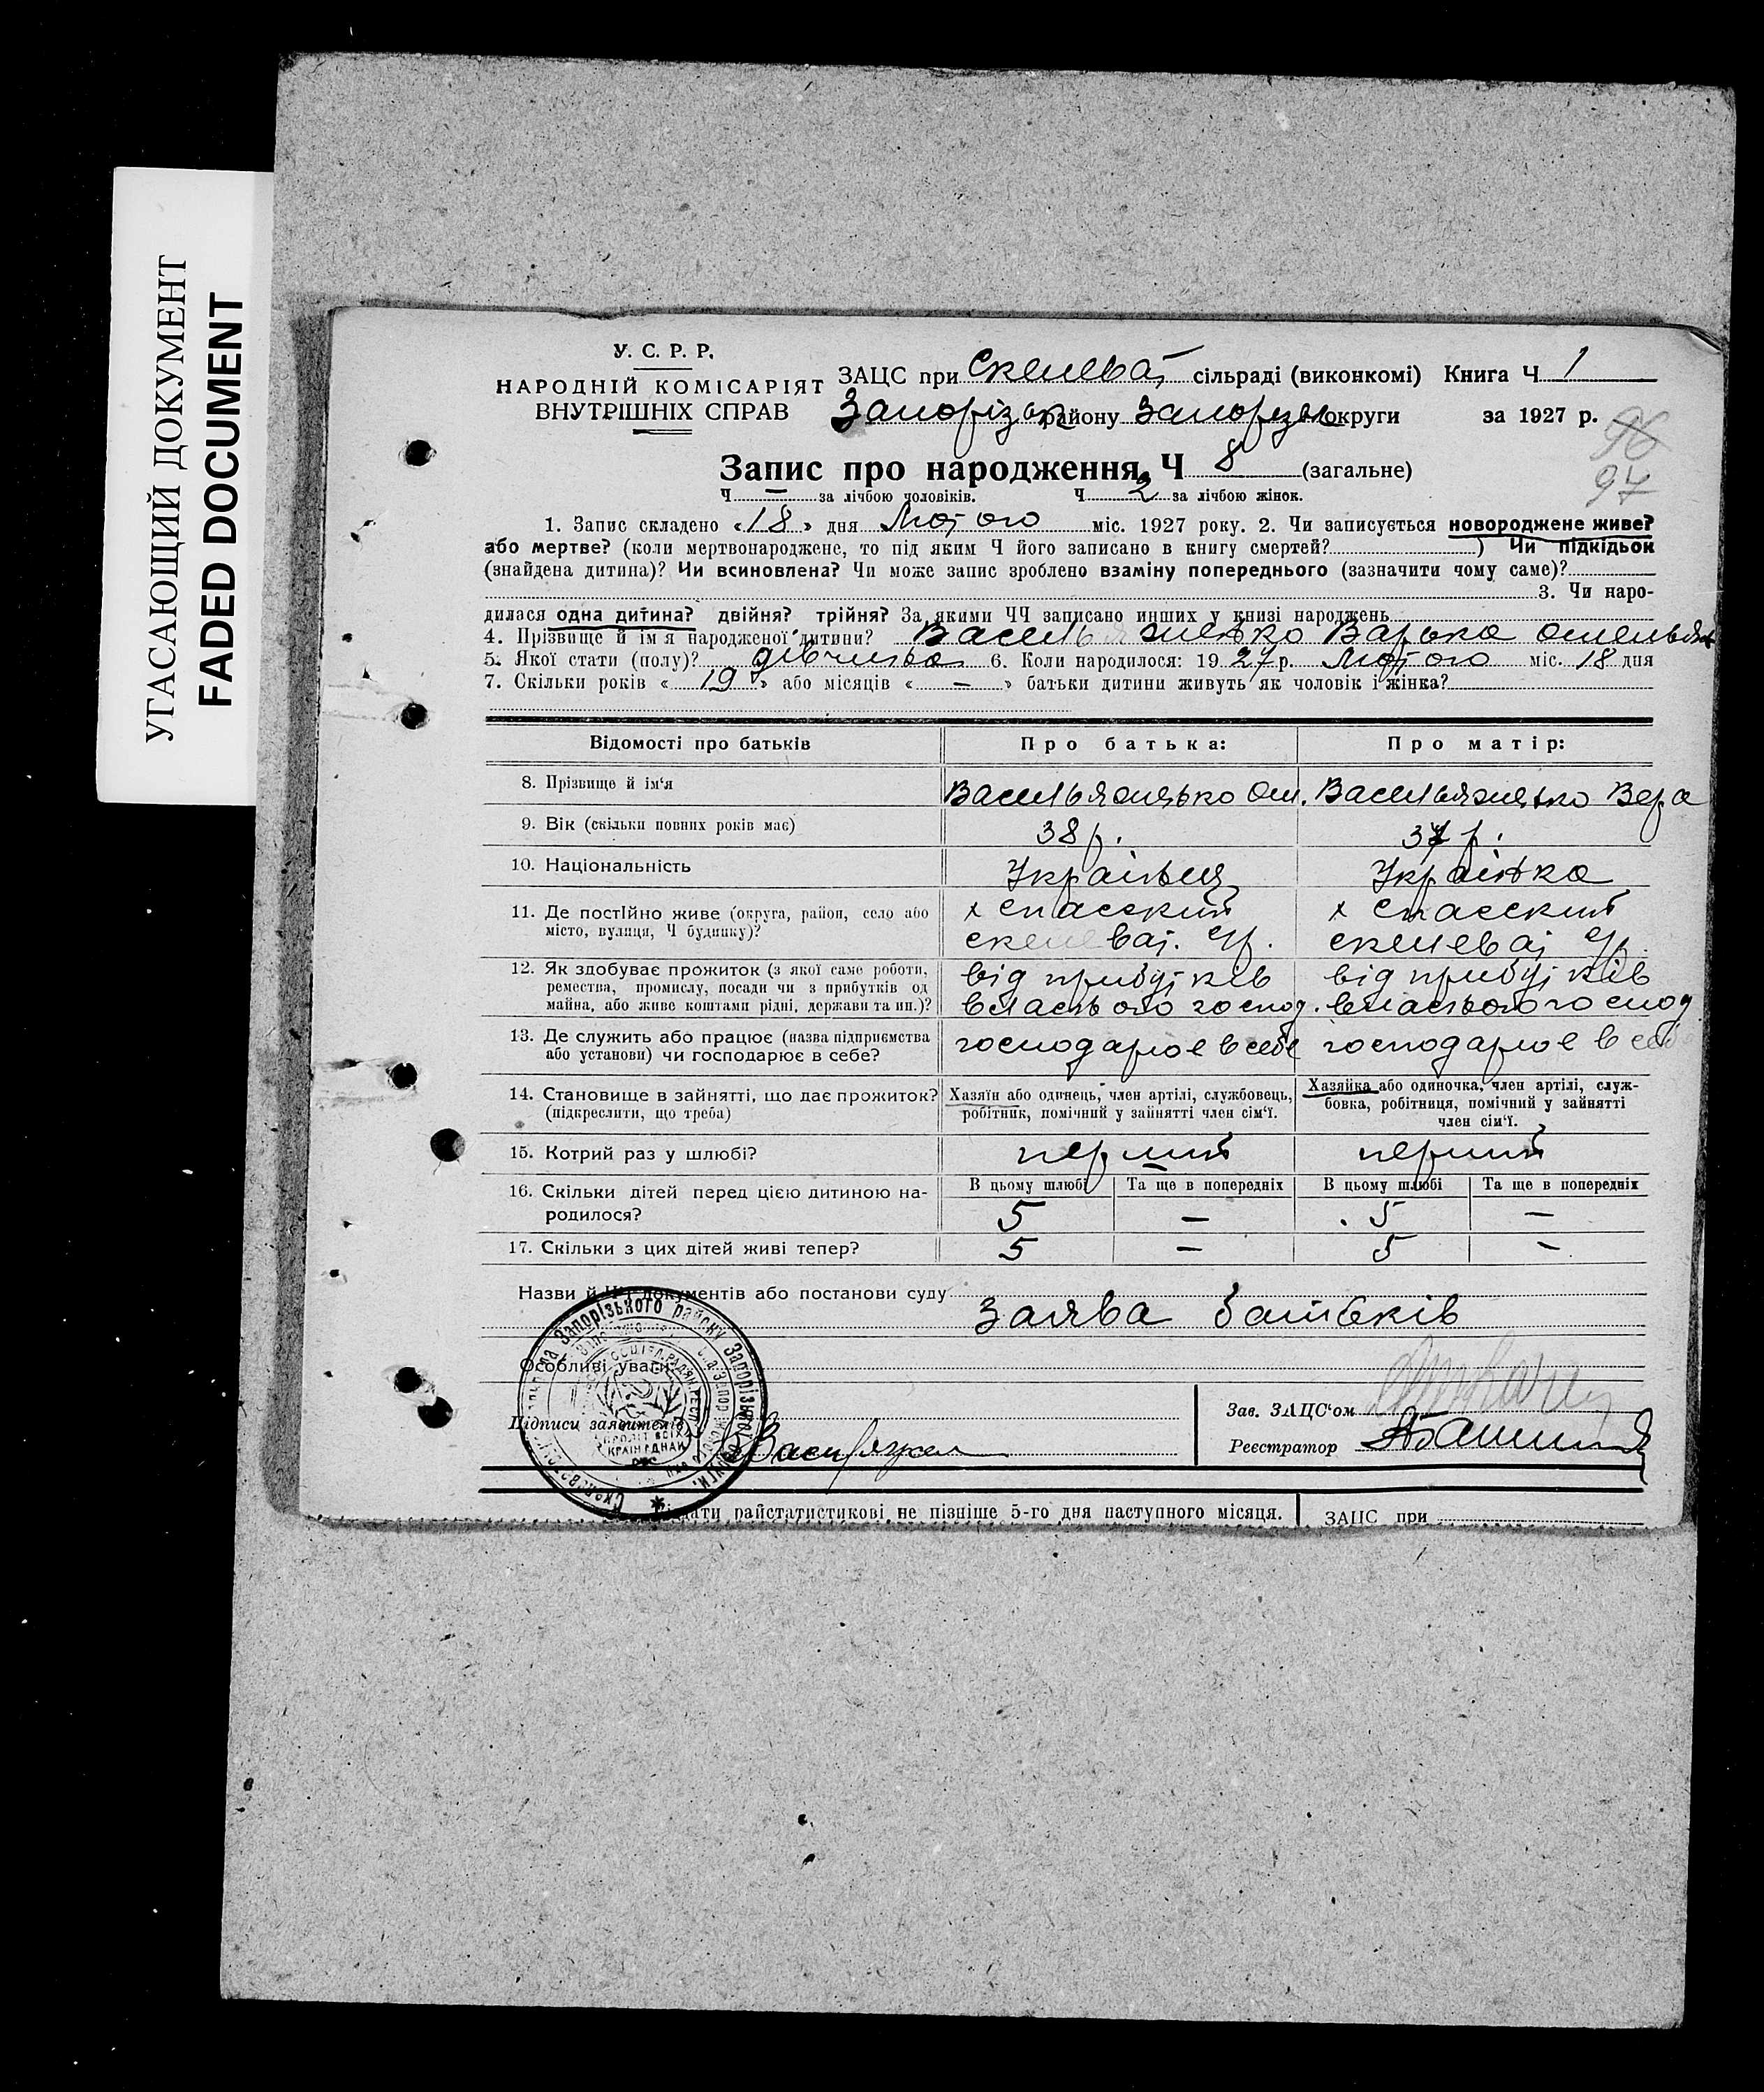 УГАСАЮЩИЙ ДОКУМЕНТ
FADED DOCUMENT
У. С. Р. Р.
НАРОДНІЙ КОМІСАРІЯТ
ВНУТРІШНІХ СПРАВ
ЗАЦС при Скелеват сільраді (виконкомі) Книга Ч 1
Запорізьк району Запорізьк округи за 1927 р.
96
97
Запис про народження, Ч 8 (загальне)
Ч — за лічбою чоловіків. Ч 2 за лічбою жінок.
1. Запис складено « 18 » дня Лютого міс. 1927 року. 2. Чи записується новороджене живе?
або мертве? (коли мертвонароджене, то під яким Ч його записано в книгу смертей? ) Чи підкідьок
(знайдена дитина)? Чи всиновлена? Чи може запис зроблено взаміну попереднього (зазначити чому саме)?
3. Чи наро-
дилася одна дитина? двійня? трійня? За якими ЧЧ записано инших у книзі народжень
4. Прізвище й ім'я народженої дитини? Варька
5. Якої стати (полу)? дівчинка 6. Коли народилося: 19 27 р. Лютого міс. 18 дня
7. Скільки років « 19 » або місяців « — » батьки дитини живуть як чоловік і жінка?
Відомості про батьків Про батька: Про матір:
8. Прізвище й ім'я Ом. Вера
9. Вік (скільки повних років має) 38 р. р.
10. Національність Українец Українка
11. Де постійно живе (округа, район, село або х Спасский х Спасский
місто, вулиця, Ч будинку)? скелеват. с/р. скелеват с/р.
12. Як здобуває прожиток (з якої саме роботи, від прибутків від прибутків
ремества, промислу, посади чи з прибутків од
майна, або живе коштами рідні, держави та ин.)? власного господ. власного господ
13. Де служить або працює (назва підприємства господарює в себе господарює в себе
або установи) чи господарює в себе?
14. Становище в зайнятті, що дає прожиток? Хазяїн або одинець, член артілі, службовець, Хазяйка або одиночка, член артілі, служ-
(підкреслити, що треба) робітник, помічний у зайнятті член сім'ї. бовка, робітниця, помічний у зайнятті
член сім'ї.
15. Котрий раз у шлюбі? перший перший
16. Скільки дітей перед цією дитиною на- В цьому шлюбі Та ще в попередніх В цьому шлюбі Та ще в попередніх
родилося? 5 — 5 —
17. Скільки з цих дітей живі тепер? 5 — 5 —
Назви й Ч документів або постанови суду
Заява батьків
Особливі уваги
Підписи заявителів
Зав. ЗАЦС'ом
Реєстратор
Запорізького району Запорізької округи
райстатистикові не пізніше 5-го дня наступного місяця. ЗАЦС при